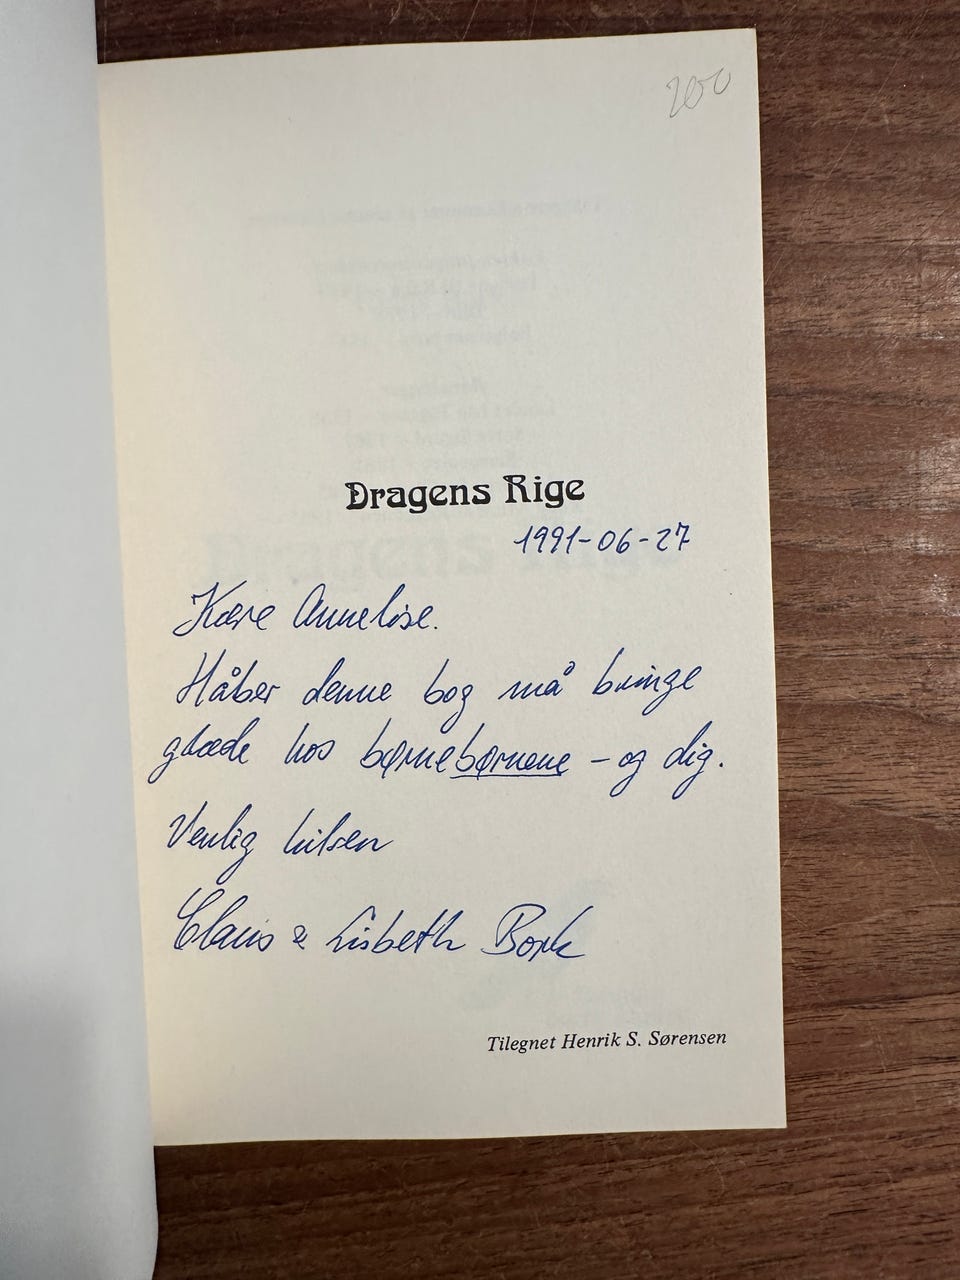 200
Dragens Rige
1991-06-27
Kære Annelise.
Håber denne bog må bringe
glæde hos børnebørnene - og dig.
Venlig hilsen
Claus & Lisbeth Bork
Tilegnet Henrik S. Sørensen